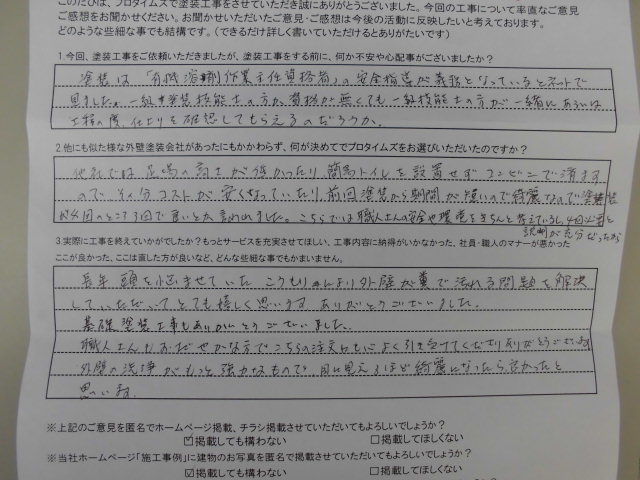 このたびは、プロタイムズで塗装工事をさせていただき誠にありがとうございました。今回の工事について率直なご意見
ご感想をお聞かせください。お聞かせいただいたご意見・ご感想は今後の活動に反映したいと考えております。
どのような細な事でも結構です。(できるだけ詳しく書いていただけるとありがたいです)
1.今回、塗装工事をご依頼いただきましたが、塗装工事をする前に、何か不安や心配事がございましたか?
塗装は「有機溶剤作業主任資格者」の安全指導が義務となっているとネットで
見ました。一級塗装技能士の方が資格が無くても一級技能士の方が一緒にあるいは
工程の度、仕上りを確認してもらえるのだろうか。
2.他にも似た様な外壁塗装会社があったにもかかわらず、何が決めてでプロタイムズをお選びいただいたのですか?
他社では足場の高さが低かったり簡易トイレを設置せずコンビニで済ます
ので、その分コストが安くなっていたり、前回塗装から期間が短いので綺麗なので塗装
が4回のところ3回で良いとか言われました。こちらでは職人さんの安全や環境をきちんと考えているし4回必要と
説明が充分だったから
3.実際に工事を終えていかがでしたか?もっとサービスを充実させてほしい、工事内容に納得がいかなかった、社員・職人のマナーが悪かった
ここが良かった、ここは直した方が良いなど、どんな些細な事でもかまいません。
長年頭を悩ませていたこうもりによる外壁が糞で汚れる問題を解決
していただいてとても嬉しく思います。ありがとうございました。
基礎塗装工事もありがとうございました。
職人さんもおだやかな方でこちらの注文にもこころよく引き受けてくださりありがとうございます
外壁の洗浄がもっと強力なもので、目に見えるほど綺麗になったら良かったと
思います。
※上記のご意見を匿名でホームページ掲載、チラシ掲載させていただいてもよろしいでしょうか?
☑掲載しても構わない □掲載してほしくない
※当社ホームページ「施工事例」に建物のお写真を匿名で掲載させていただいてもよろしいでしょうか?
☑掲載しても構わない □掲載してほしくない